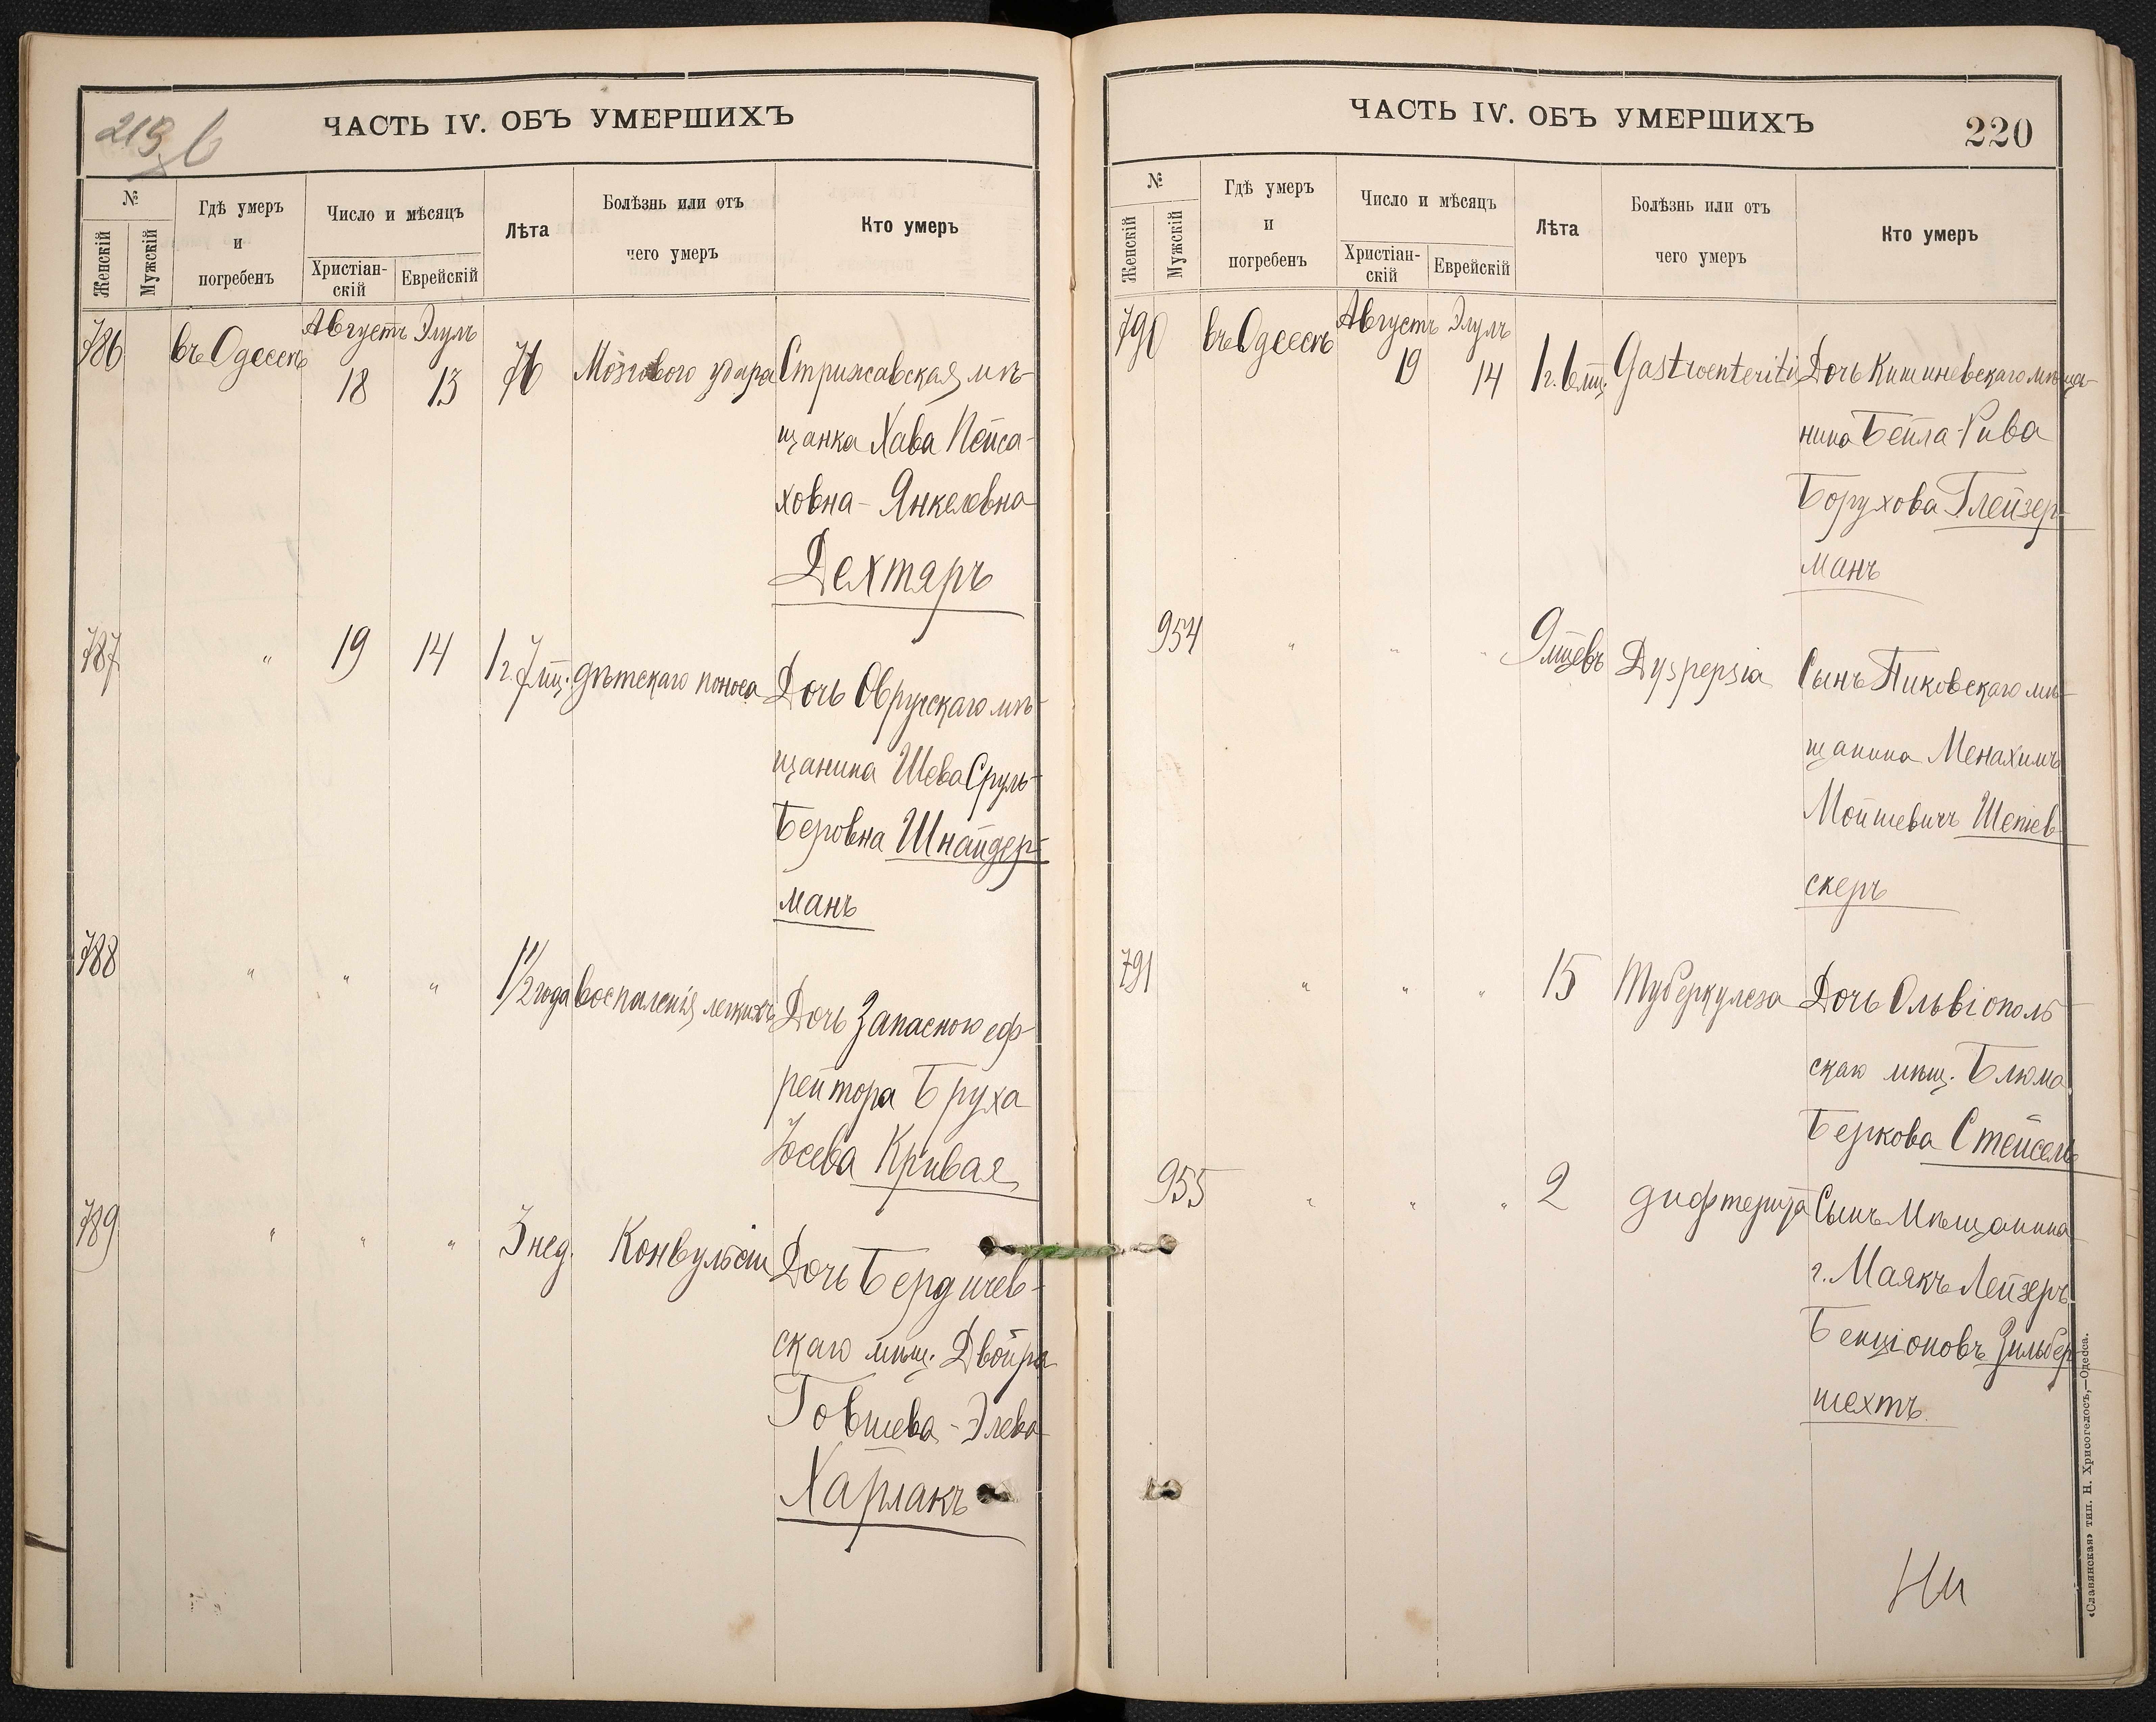 219 b
ЧАСТЬ IV. ОБЪ УМЕРШИХЪ
№
Женскій
Мужскій
Гдѣ умеръ
и
погребенъ
Число и мѣсяцъ
Христіан-
скій
Еврейскій
Лѣта
Болѣзнь или отъ
чего умеръ
Кто умеръ
786 въ Одессѣ Августъ 18 Элулъ 13 76 Мозгового удара Стрижавская мѣ-
щанка Хава Пейса-
ховна-Янкелевна
Дехтяръ
787 " 19 14 1 г. 7 мц. дѣтскаго поноса Дочь Овручскаго мѣ-
щанина Шева Сруль-
Беровна Шнайдер-
манъ
788 " " " 1 1/2 года воспаленія легкихъ Дочь Запасного еф-
рейтора Бруха
Іосева Кривая
789 " " " 3 нед. Конвульсіи Дочь Бердичев-
скаго мѣщ. Двойра
Говшева-Элева
Харлакъ
ЧАСТЬ IV. ОБЪ УМЕРШИХЪ
220
№
Женскій
Мужскій
Гдѣ умеръ
и
погребенъ
Число и мѣсяцъ
Христіан-
скій
Еврейскій
Лѣта
Болѣзнь или отъ
чего умеръ
Кто умеръ
790 въ Одессѣ Августъ 19 Элулъ 14 1 г. 6 мц. Gastroenteritis Дочь Кишиневскаго мѣща-
нина Бейла-Рива
Борухова Глейзер-
манъ
954 " " " 9 мцевъ Dyspepsia Сынъ Пиковскаго мѣ-
щанина Менахимъ
Мойшевичъ Шепев-
скеръ
791 " " " 15 Туберкулеза Дочь Ольвіополь-
скаго мѣщ. Блюма
Беркова Стейсель
955 " " " 2 дифтерита Сынъ Мѣщанина
г. Маякъ Лейзеръ
Бенціоновъ Зильбер-
шехтъ
«Славянская» тип. Н. Хрисогелосъ,—Одесса.